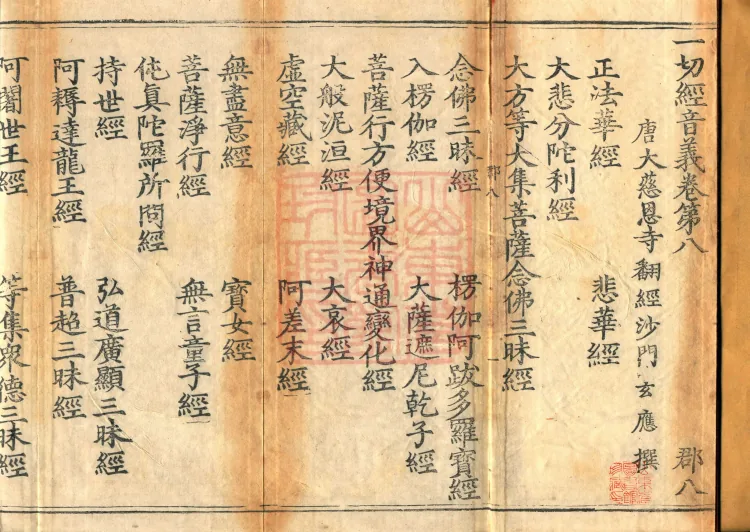 一切經音義卷第八 郡八
唐大慈恩寺翻經沙門玄應撰
正法華經 悲華經
大悲分陀利經
大方等大集菩薩念佛三昧經
郡八
念佛三昧經 楞伽阿跋多羅寶經
入楞伽經 大薩遮尼乾子經
菩薩行方便境界神通變化經
大般泥洹經 大哀經
虛空藏經 阿差末經
無盡意經 寶女經
菩薩淨行經 無言童子經
伅真陀羅所問經
持世經 弘道廣顯三昧經
阿耨達龍王經 普超三昧經
阿闍世王經 等集眾德三昧經